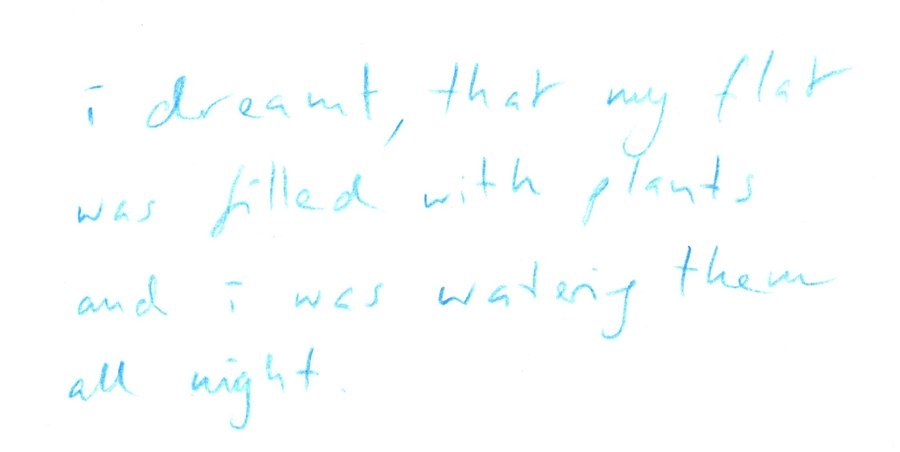 i dreamt, that my flat
was filled with plants
and i was watering them
all night.